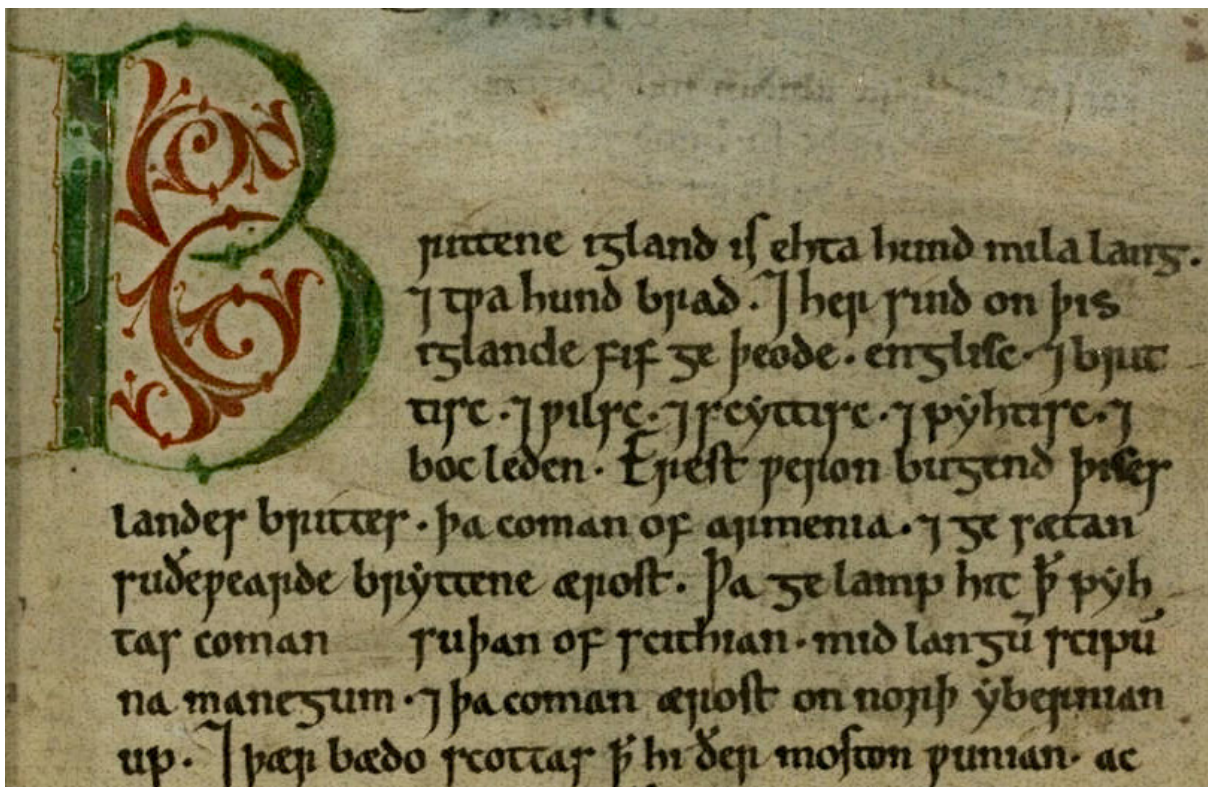 Brittene igland is ehta hund mila lang.
⁊ tƿa hund brad. ⁊ her sind on þis
iglande fif ge þeode. englisc. ⁊ brit
tisc. ⁊ ƿilsc. ⁊ scyttisc. ⁊ pyhtisc. ⁊
boc leden. Erest ƿeron bugend þises
landes brittes. þa coman of armenia. ⁊ ge sætan
suðeƿearde bryttene ærost. Þa ge lamp hit ꝥ pyh
tas coman suþan of scithian. mid langū scipū
na manegum. ⁊ þa coman ærost on norþ ybernian
up. ⁊ þær bædo scottas ꝥ hi ðer moston ƿunian. ac